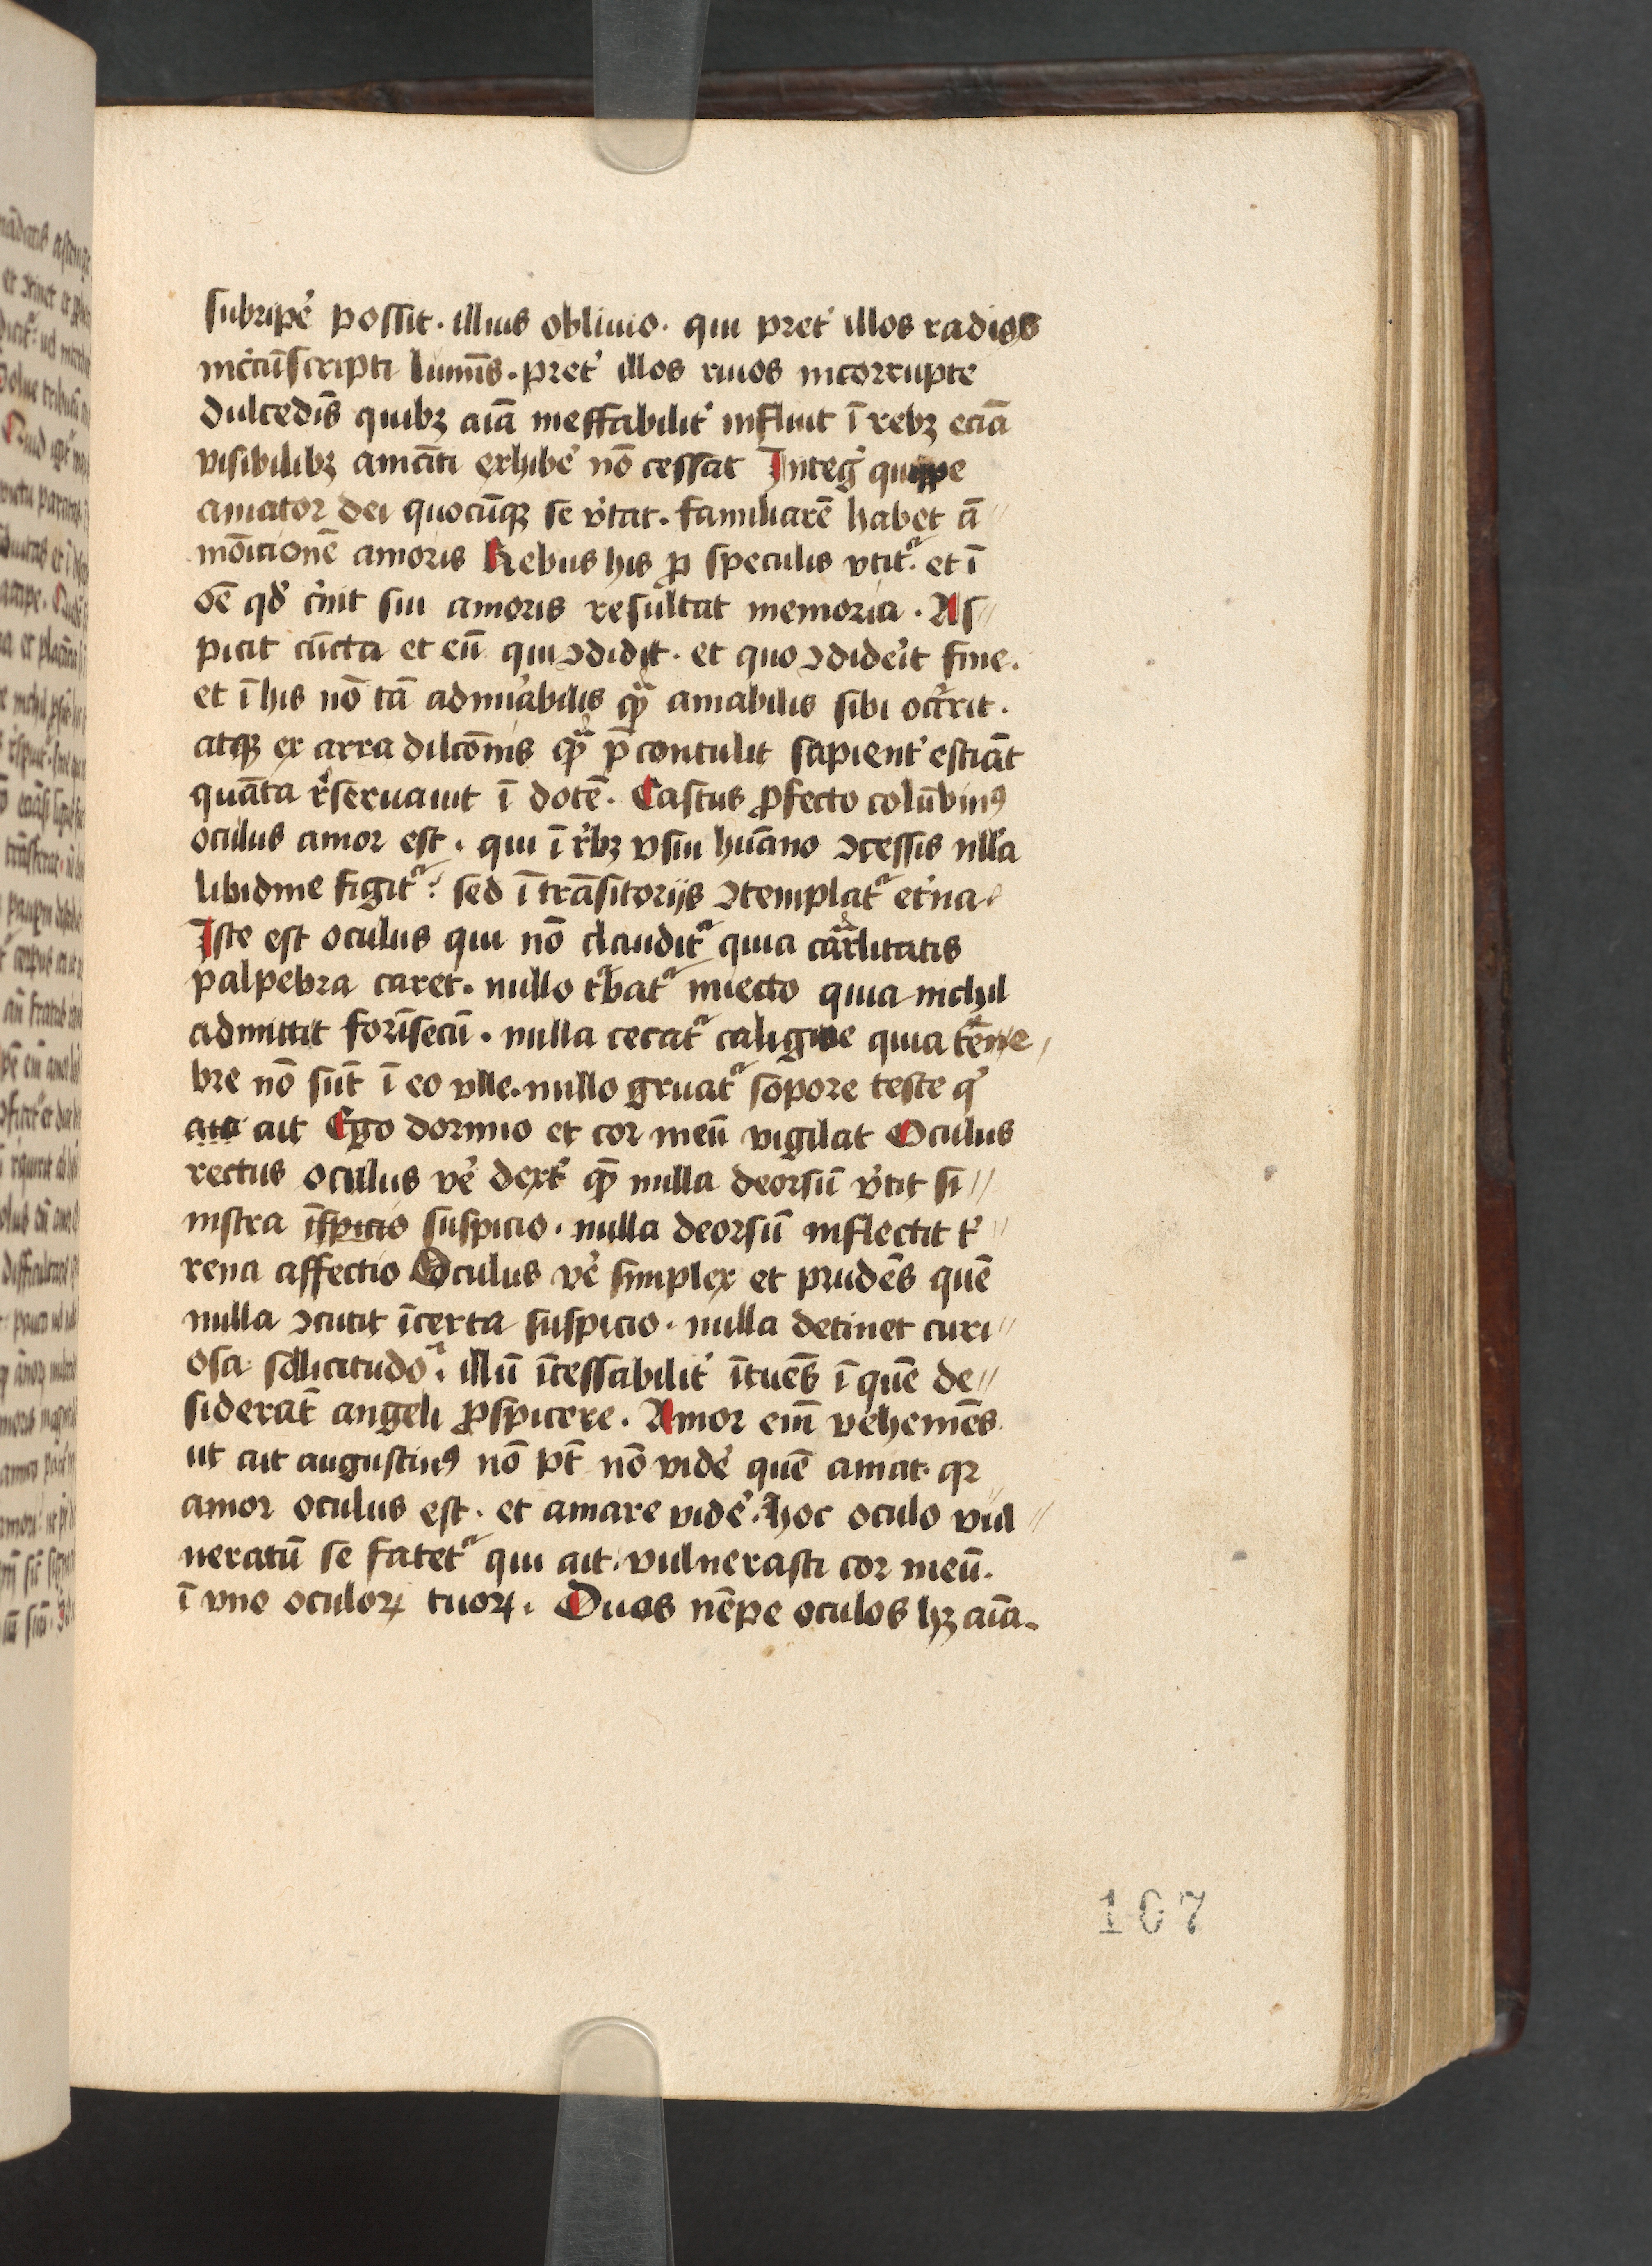 subripe᷒ possit · illius obliuio · qui pret᷒ illos radios
incͥcūscripti lumīs · pret᷒ illos riuos incorrupte
dulcedīs quibꝫ aīa ineffabilit᷒ influit ī rebꝫ eciā
visibilibꝫ amāti exhibe᷒ nō cessat Integ᷒ quippe
amator dei quocūqꝫ se v᷒tat · familiarē habet ā〃
mōicionē amoris Rebus his ꝓ speculis vtitᷓ · et ī
oē qd᷒ c᷒nit sui amoris resultat memoria · As〃
picit cūcta et eū qui ꝯdidit · et quo ꝯdide᷒it fine ·
et ī his nō tā admi᷒abilis qᷓ amabilis sibi occ᷒rit ·
atqꝫ ex arra dilcōnis qᷓ p̄contulit sapient᷒ estiāt
quāta r᷒seruauit ī dotē · Castus ꝓfecto colūbinꝰ
oculus amor est · qui ī r᷒bꝫ vsui hūano ꝯcessis nll᷒a
libidine figitᷓ · sed ī trāsitorijs ꝯtemplatᷓ et᷒na
Iste est oculus qui nō clauditᷓ quia carͣlitatis
palpebra caret · nullo t᷒batᷓ iniecto quia nichil
admittit forīsecū · nulla cecatᷓ caligine quia tēne
bre nō sūt ī eo vlle · nullo gruatᷓ sopore teste q᷒
ait Ego dormio et cor meū vigilat Oculus
rectus oculus ve᷒ dext᷒ qᷓ nulla deorsū v᷒tit si〃
nistra īspicio suspicio · nulla deorsū inflectit t᷒〃
rena affectio Oculus ve᷒ simplex et prudēs quē
nulla ꝯcutit īcerta suspicio · nulla detinet curi〃
osa sollicitudo · illū īcessabilit᷒ ītuēs ī quē de〃
siderāt angeli ꝓspicere · Amor eīm vehemēs
ut ait augustinꝰ nō pt̄ nō vide᷒ quē amat · qꝛ
amor oculus est · et amare vide᷒ · hoc oculo vul〃
neratū se fatetᷓ qui ait · vulnerasti cor meū ·
ī vno oculoꝝ tuoꝝ · Duos nēpe oculos hꝫ aīa
107